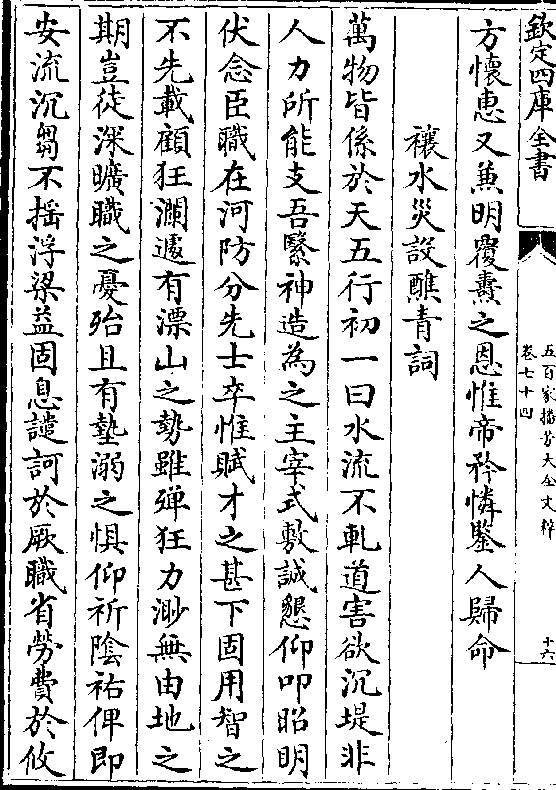 欽定四庫全書
五百家播芳大全文粹
卷七十四
十六
方懷恵又兼明覆燾之恩惟帝矜憐鑒人歸命
禳水災設醮青詞
萬物皆係於天五行初一曰水流不軌道害欲沉堤非
人力所能支吾繄神造為之主宰式敷誠懇仰叩昭明
伏念臣職在河防分先士卒惟賦才之甚下固用智之
不先載顧狂瀾遽有漂山之勢雖殫狂力渺無由地之
期豈徒深曠職之憂殆且有墊溺之惧仰祈陰祐俾即
安流沉芻不揺浮梁益固息譴訶於厥職省勞費於攸